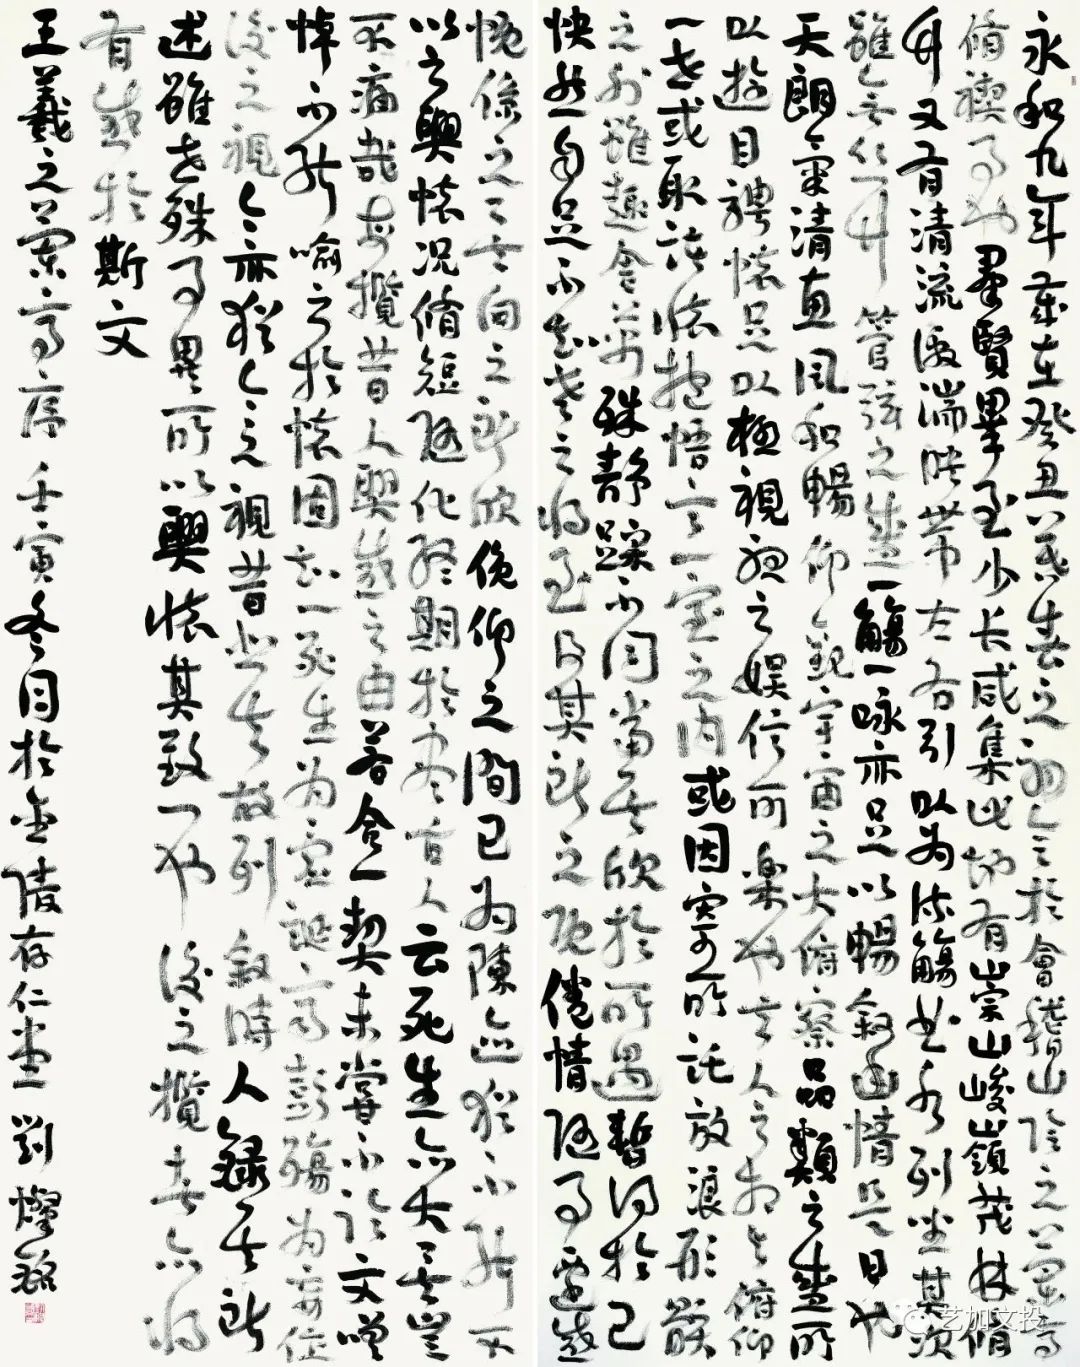 永和九年歲在癸丑暮春之初會於會稽山陰之蘭亭
脩禊事也羣賢畢至少長咸集此地有崇山峻嶺茂林脩
竹又有清流激湍映帶左右引以為流觴曲水列坐其次
雖無絲竹管弦之盛一觴一詠亦足以暢敘幽情是日也
天朗氣清惠風和暢仰觀宇宙之大俯察品類之盛所
以遊目騁懷足以極視聽之娛信可樂也夫人之相與俯仰
一世或取諸懷抱悟言一室之內或因寄所託放浪形骸
之外雖趣舍萬殊靜躁不同當其欣於所遇暫得於己
快然自足不知老之將至及其所之既倦情隨事遷感
慨係之矣向之所欣俛仰之間已為陳迹猶不能不
以之興懷況脩短隨化終期於盡古人云死生亦大矣豈
不痛哉每攬昔人興感之由若合一契未嘗不臨文嗟
悼不能喻之於懷固知一死生為虛誕齊彭殤為妄作
後之視今亦猶今之視昔悲夫故列敘時人錄其所
述雖世殊事異所以興懷其致一也後之攬者亦將
有感於斯文
王羲之蘭亭序 壬寅冬月於金陵存仁堂 劉燦銘
艺加文投